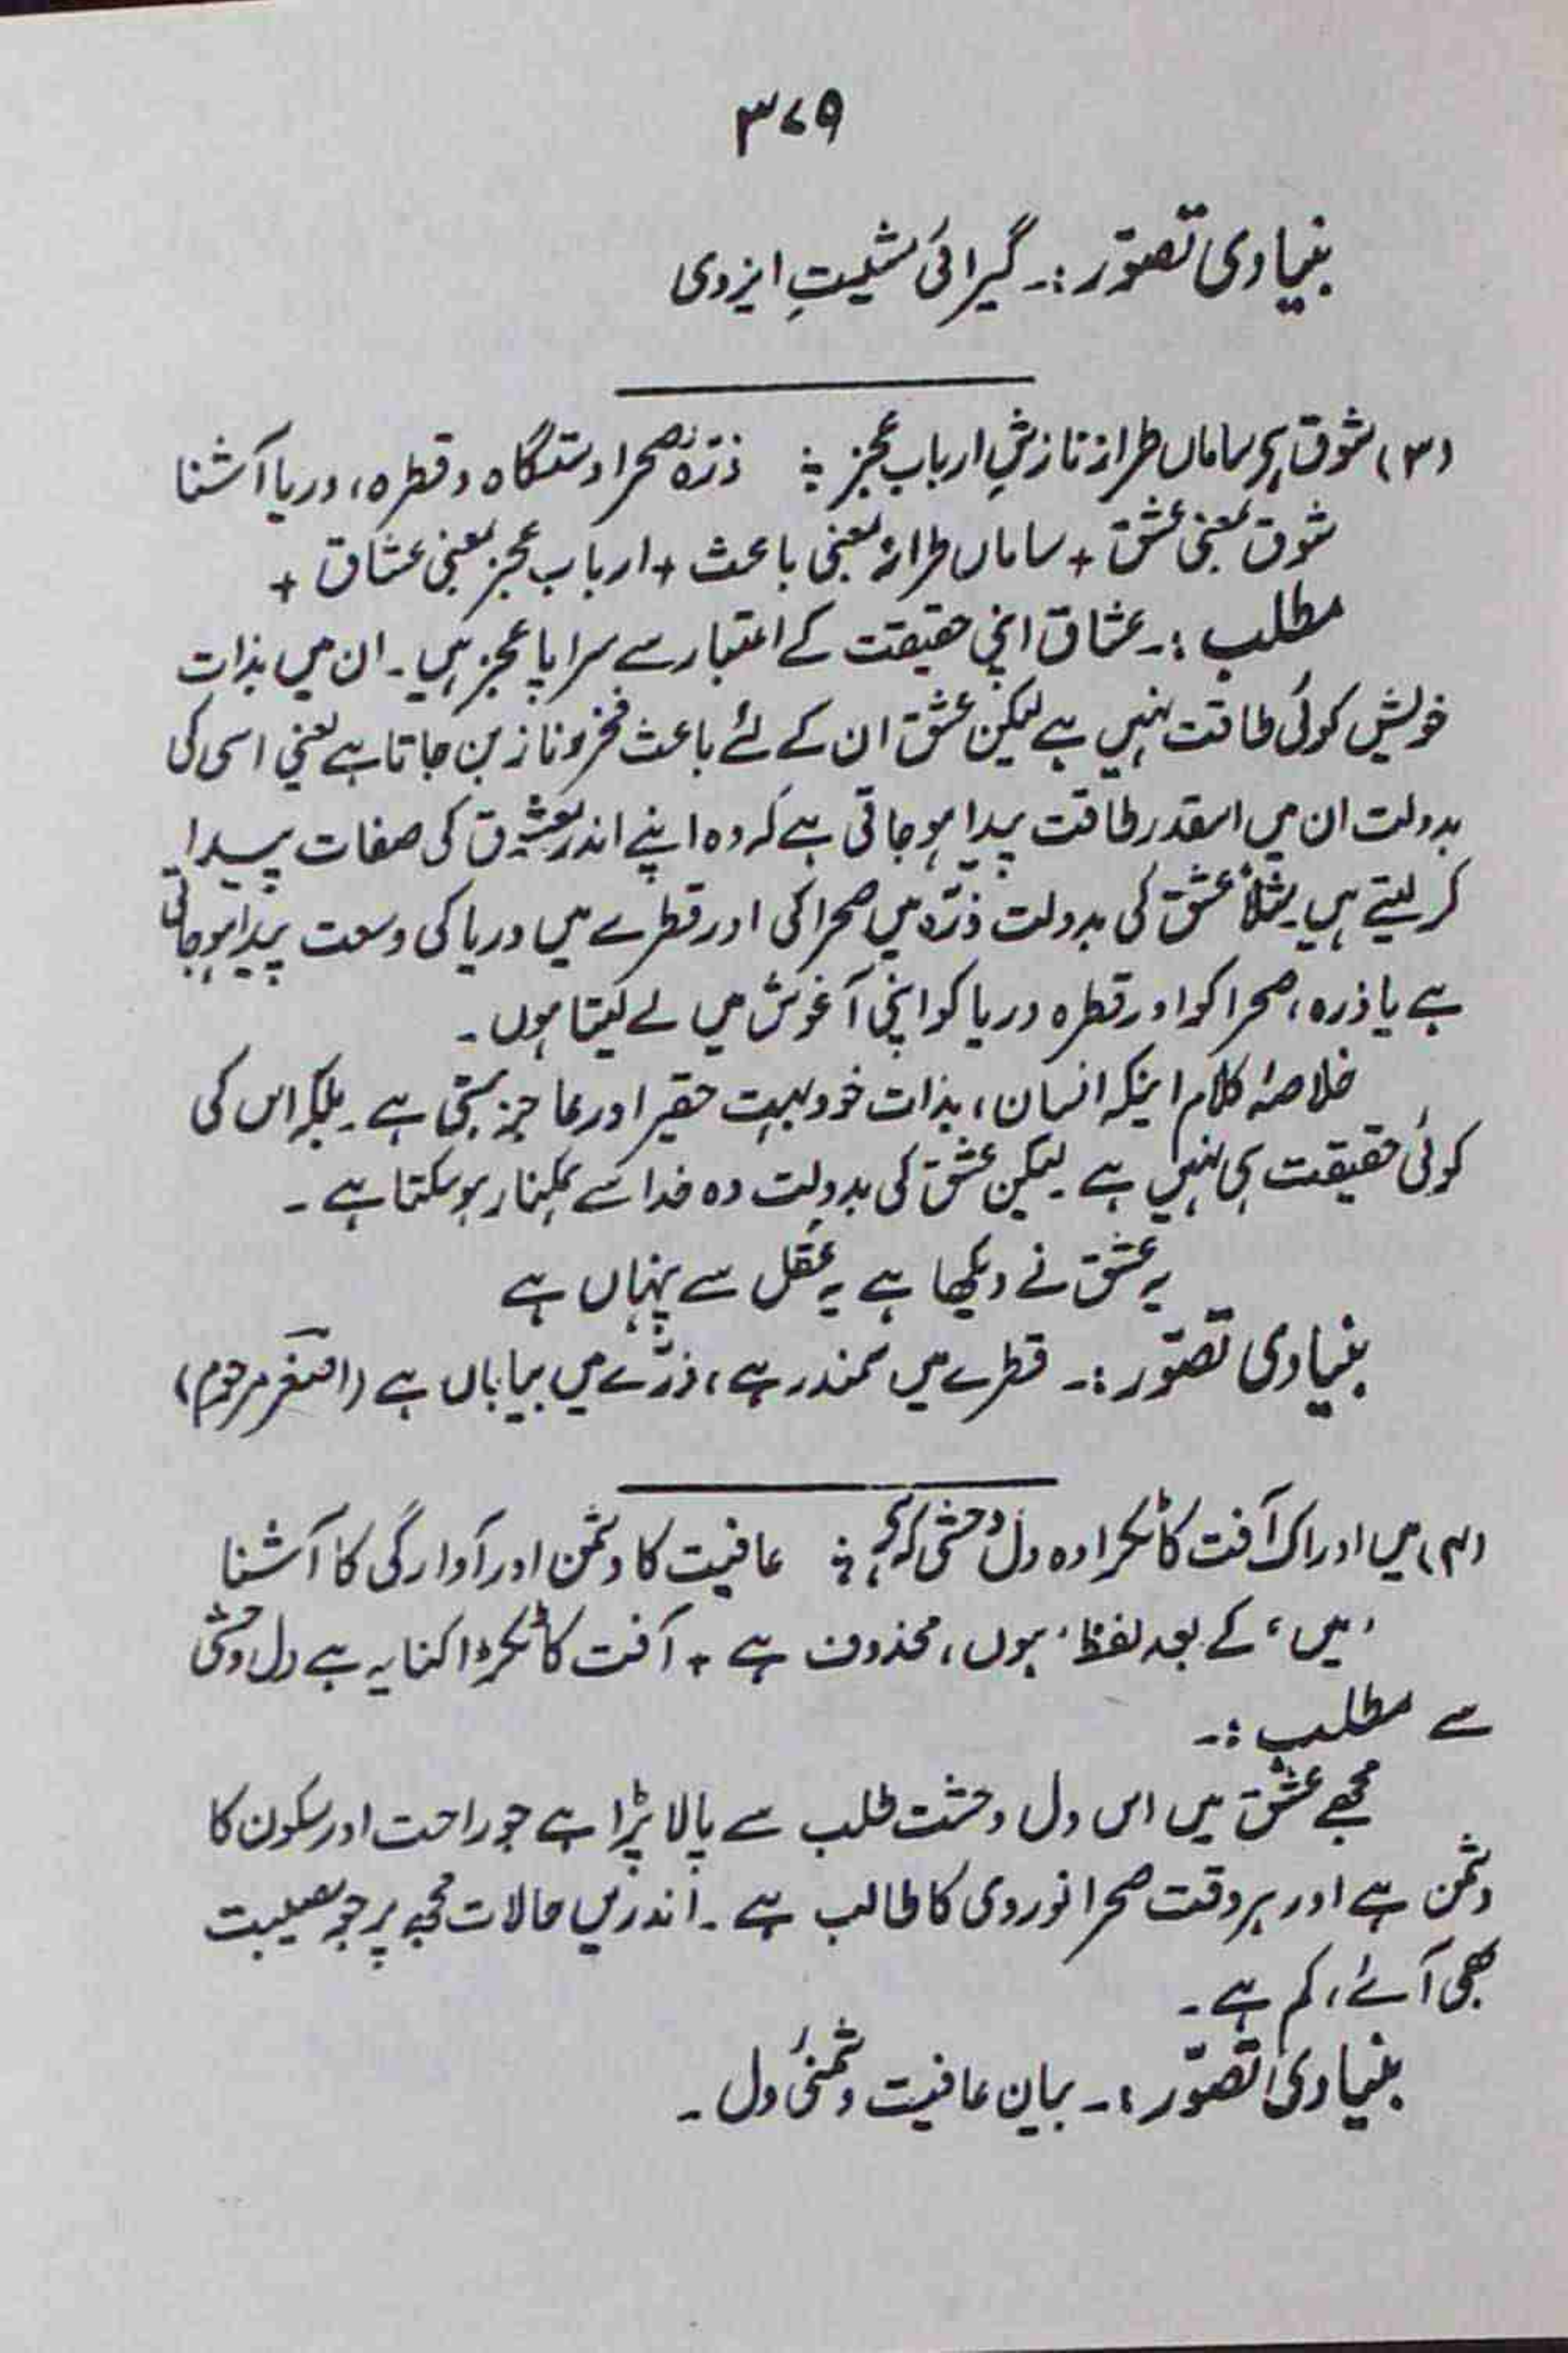 ۳۷۹
بنیادی تصوّر :۔ گیرائی مشیتِ ایزدی
(۳) شوق ہے ساماں طرازِ نازشِ اربابِ عجز ؛ ذرّہ صحرا دستگاہ و قطرہ، دریا آشنا
شوق بمعنی عشق + ساماں طراز بمعنی باعث + ارباب عجز بمعنی عشاق +
مطلب :۔ عشاق اپنی حقیقت کے اعتبار سے سراپا عجز ہیں۔ ان میں بذات
خویش کوئی طاقت نہیں ہے لیکن عشق ان کے لئے باعث فخر و ناز بن جاتا ہے یعنی اسی کی
بدولت ان میں اسقدر طاقت پیدا ہو جاتی ہے کہ وہ اپنے اندر معشوق کی صفات پیدا
کر لیتے ہیں۔ مثلاً عشق کی بدولت ذرّہ میں صحرا کی اور قطرے میں دریا کی وسعت پیدا ہو جاتی
ہے یا ذرہ، صحرا کو اور قطرہ دریا کو اپنی آغوش میں لے لیتا ہوں۔
خلاصۂ کلام اینکہ انسان، بذات خود بہت حقیر اور عاجز ہستی ہے۔ بلکہ اس کی
کوئی حقیقت ہی نہیں ہے۔ لیکن عشق کی بدولت وہ خدا سے ہمکنار ہو سکتا ہے۔
یہ عشق نے دیکھا ہے یہ عقل سے پنہاں ہے
بنیادی تصوّر :۔ قطرے میں سمندر ہے، ذرّے میں بیاباں ہے (اصغر مرحوم)
(۴) میں اور اک آفت کا ٹکڑا وہ دل وحشی کہ ہے ؛ عافیت کا دشمن اور آوارگی کا آشنا
'میں' کے بعد لفظ 'ہوں' محذوف ہے + آفت کا ٹکڑا کنایہ ہے دل وحشی
سے مطلب :۔
مجھے عشق میں اس دل وحشت طلب سے پالا پڑا ہے جو راحت اور سکون کا
دشمن ہے اور ہر وقت صحرا نوردی کا طالب ہے۔ اندریں حالات مجھ پر جو مصیبت
بھی آئے، کم ہے۔
بنیادی تصوّر :۔ بیان عافیت دشمنیٔ دل۔